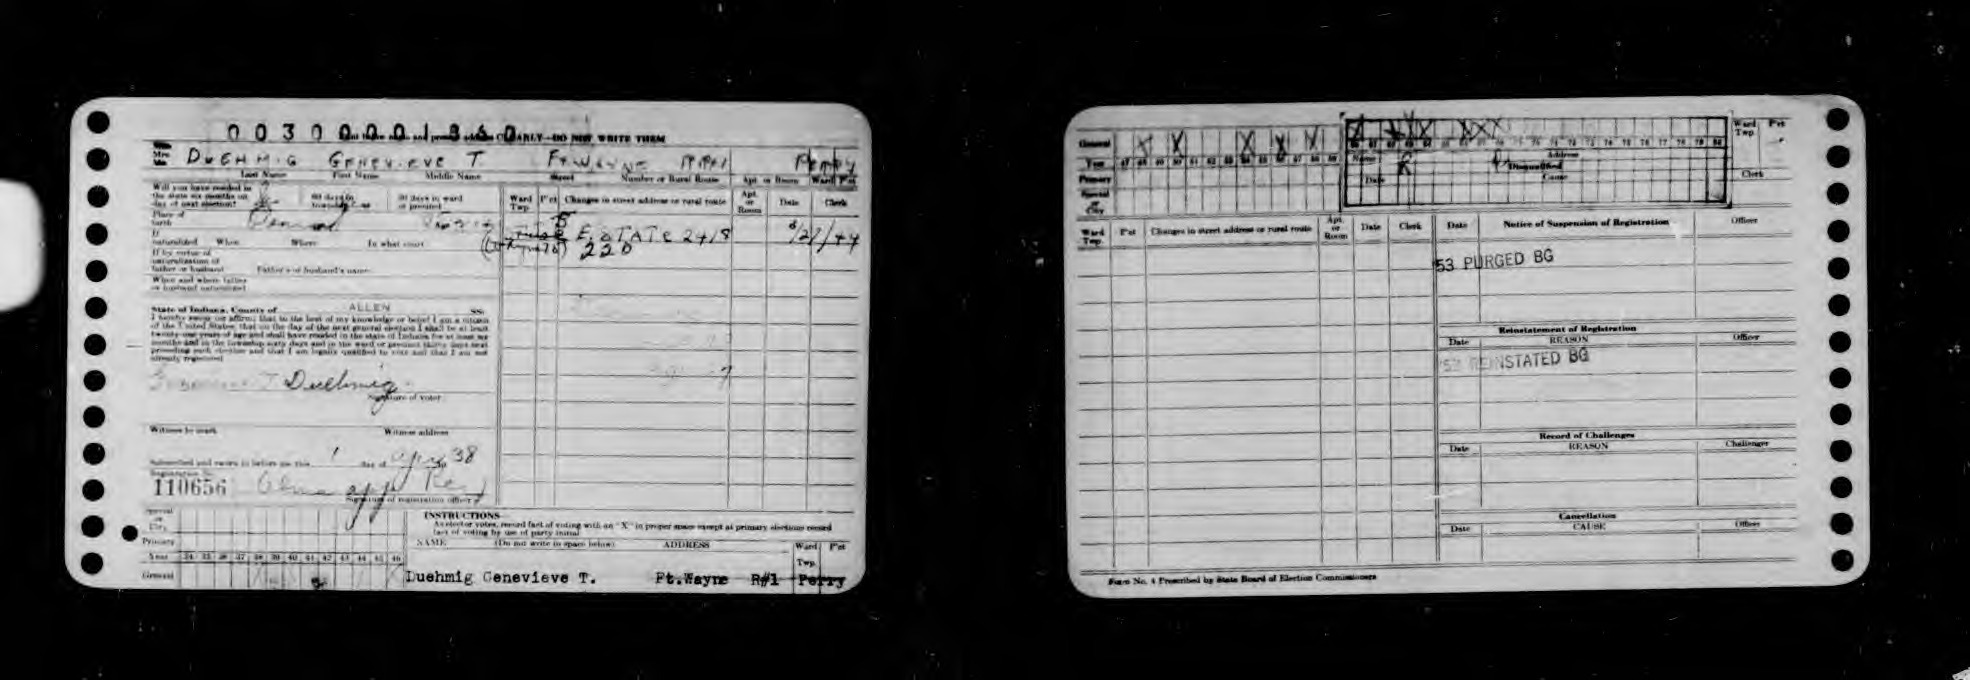 00300001360
Print these name and present address CLEARLY—DO NOT WRITE THEM
Mrs. DUEHMIG GENEVIEVE T FT. WAYNE RR#1 PERRY
Last Name First Name Middle Name Street Number or Rural Route Apt. or Room Ward P'ct
Will you have resided in
the state six months on
day of next election? 60 days in township 30 days in ward or precinct
Place of
birth
If
naturalized When Where In what court
If by virtue of
naturalization of
father or husband Father's or husband's name
When and where father
or husband naturalized
Ward Twp. P'ct Changes in street address or rural route Apt. or Room Date Clerk
E. STATE 2418 8/21/44
220
State of Indiana, County of ALLEN SS:
I hereby swear (or affirm) that to the best of my knowledge or belief I am a citizen
of the United States; that on the day of the next general election I shall be at least
twenty-one years of age and shall have resided in the state of Indiana for at least six
months and in the township sixty days and in the ward or precinct thirty days next
preceding such election and that I am legally qualified to vote and that I am not
already registered
Genevieve T Duehmig
Signature of voter
Witness to mark Witness address
Subscribed and sworn to before me this 1 day of Apr 38
Registration No.
110656
Signature of registration officer
Special or City
Primary
Year 34 35 36 37 38 39 40 41 42 43 44 45 46
General
INSTRUCTIONS
As elector votes, record fact of voting with an "X" in proper space except at primary elections record
fact of voting by use of party initial
NAME (Do not write in space below) ADDRESS Ward Twp. P'ct
Duehmig Genevieve T. Ft.Wayne R#1 Perry
General X X X X X
Year 47 48 49 50 51 52 53 54 55 56 57 58 59
Primary
Special or City
60 61 62 63 64 65 66 67 68 69 70 71 72 73 74 75 76 77 78 79 80
Name Address
Date R Disqualified
Cause
Ward Twp. P'ct
Clerk
Ward Twp. P'ct Changes in street address or rural route Apt. or Room Date Clerk
Date Notice of Suspension of Registration Officer
'53 PURGED BG
Reinstatement of Registration
Date REASON Officer
'53 REINSTATED BG
Record of Challenges
Date REASON Challenger
Cancellation
Date CAUSE Officer
Form No. 4 Prescribed by State Board of Election Commissioners